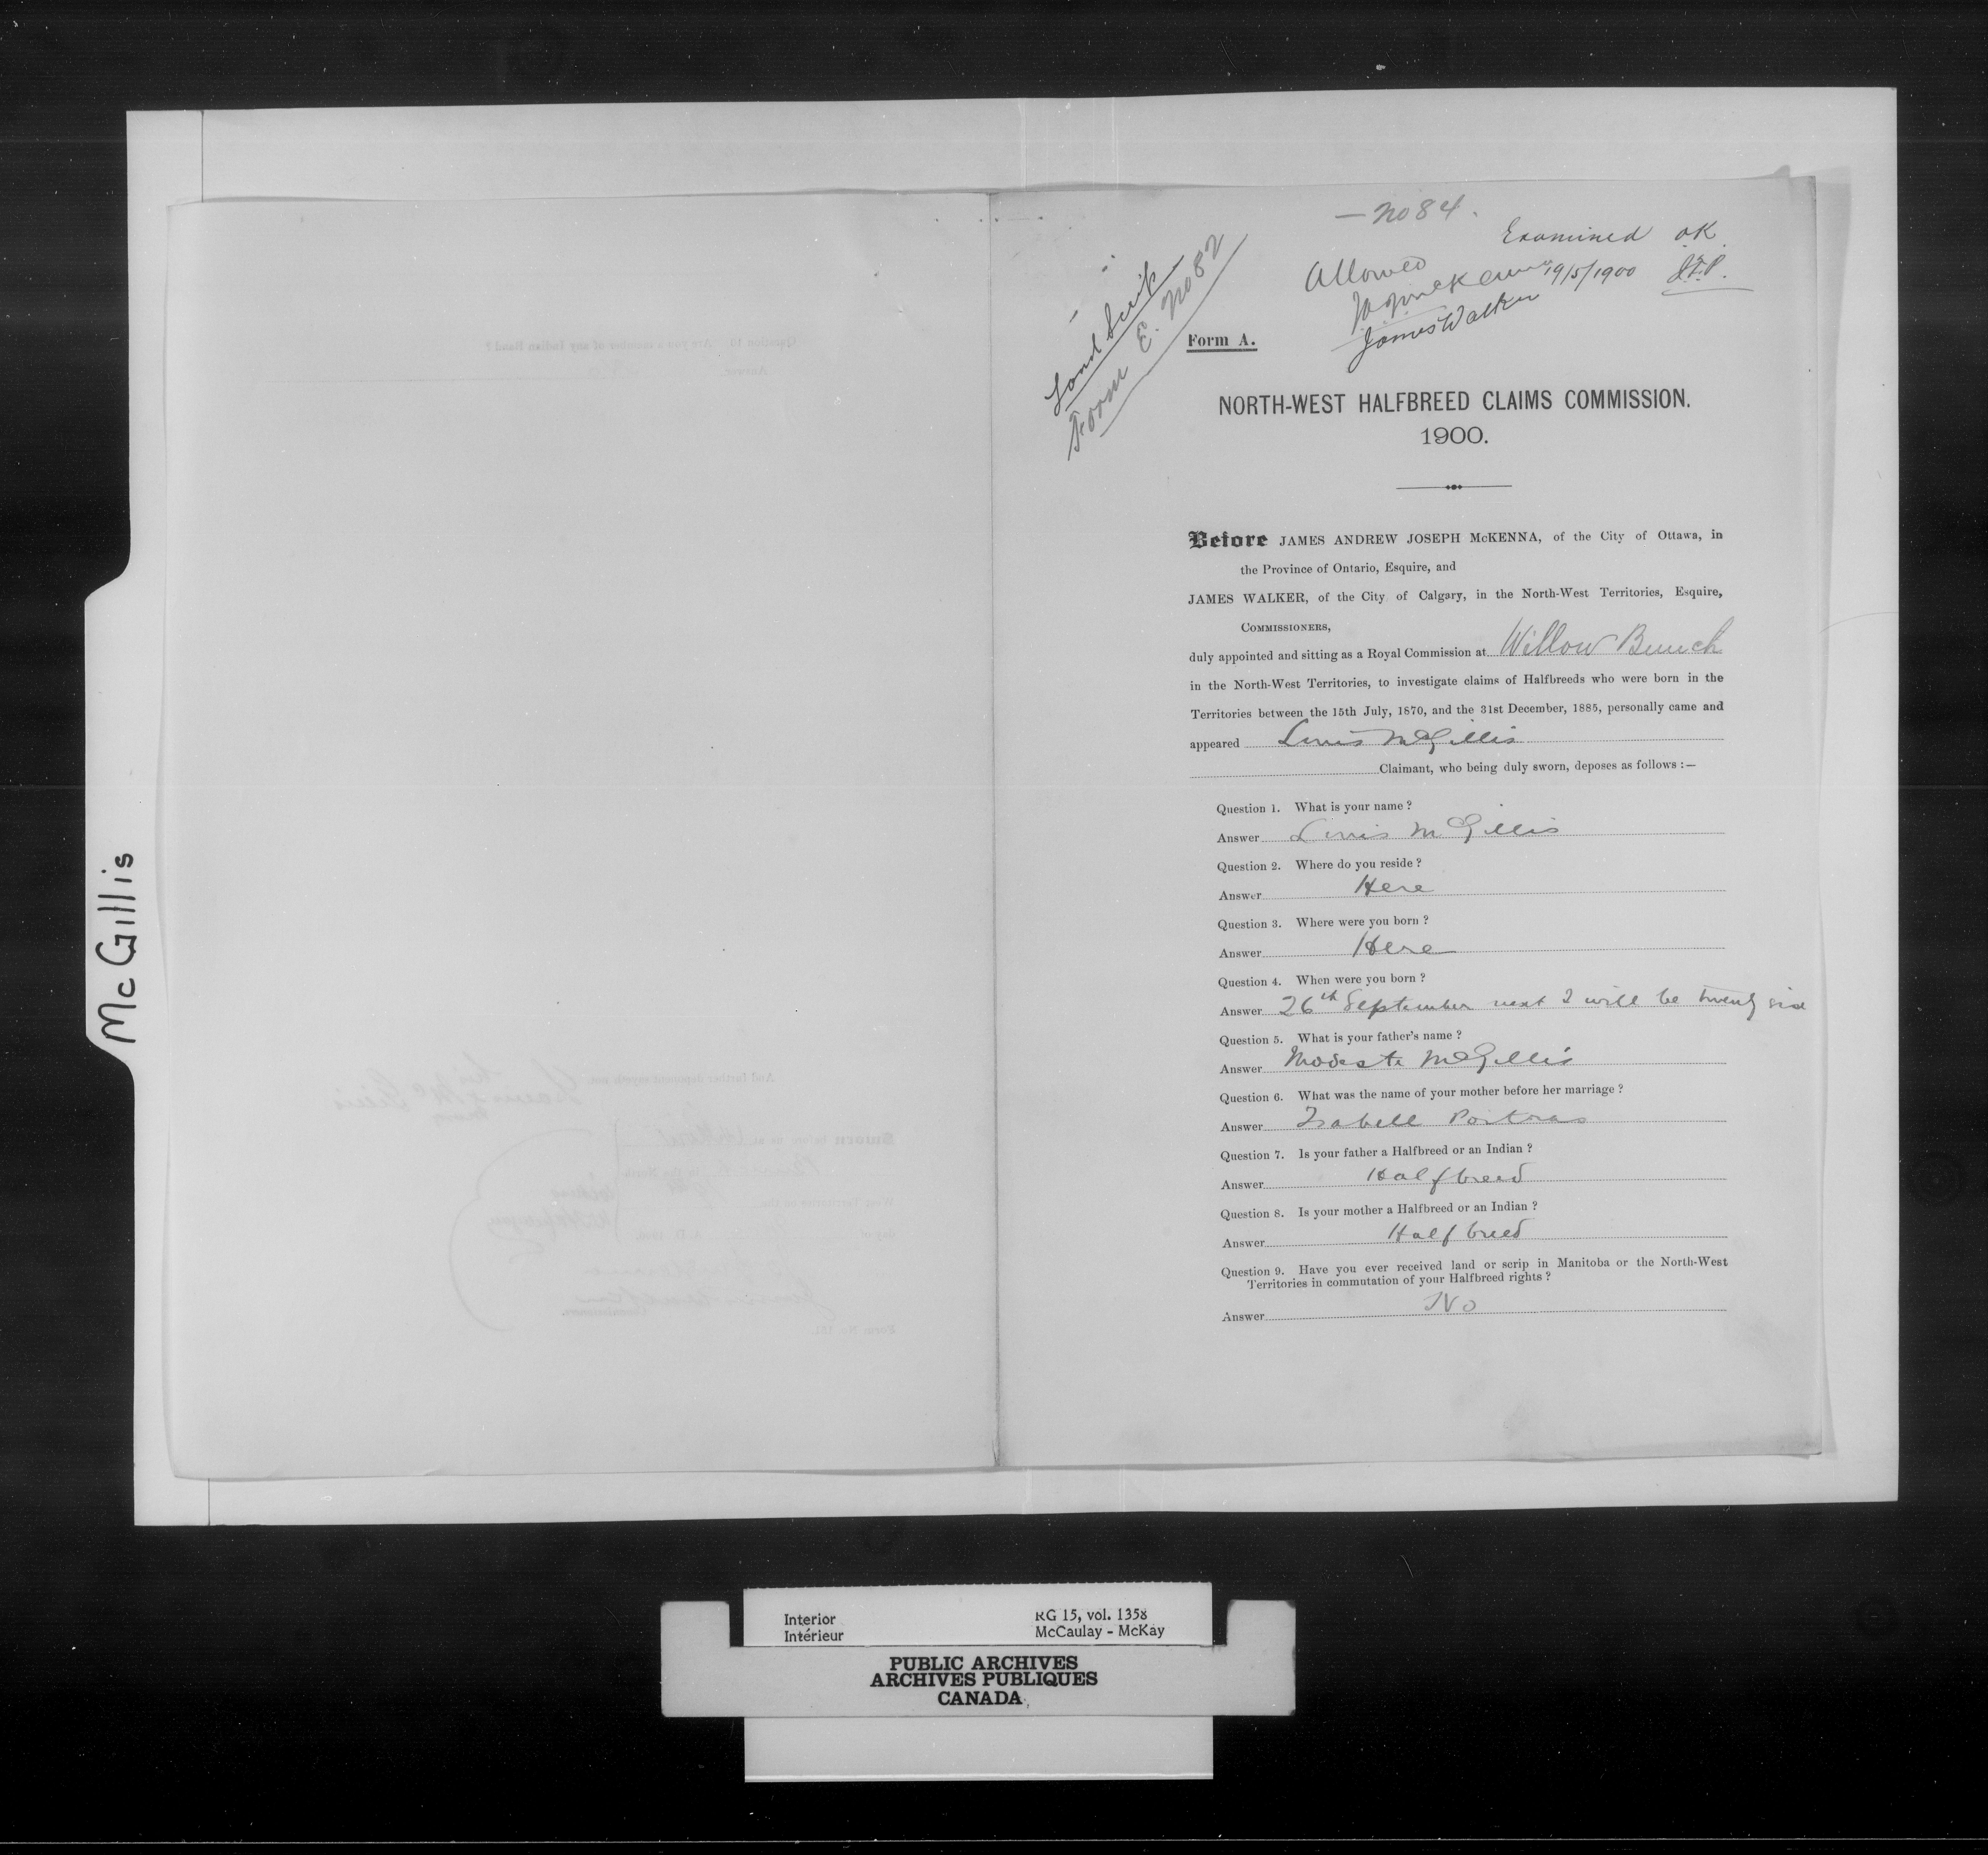 McGillis
— No 84.
Examined OK
J.E.P.
Allowed
19/5/1900
James Walker
Land Scrip
Form E. No 82
Form A.
NORTH-WEST HALFBREED CLAIMS COMMISSION.
1900.
Before JAMES ANDREW JOSEPH McKENNA, of the City of Ottawa, in
the Province of Ontario, Esquire, and
JAMES WALKER, of the City of Calgary, in the North-West Territories, Esquire,
COMMISSIONERS,
duly appointed and sitting as a Royal Commission at Willow Bunch
in the North-West Territories, to investigate claims of Halfbreeds who were born in the
Territories between the 15th July, 1870, and the 31st December, 1885, personally came and
appeared Louis McGillis
Claimant, who being duly sworn, deposes as follows :—
Question 1. What is your name ?
Answer Louis McGillis
Question 2. Where do you reside ?
Answer Here
Question 3. Where were you born ?
Answer Here
Question 4. When were you born ?
Answer 26th September next I will be twenty six
Question 5. What is your father's name ?
Answer Modeste McGillis
Question 6. What was the name of your mother before her marriage ?
Answer Isabell Poitras
Question 7. Is your father a Halfbreed or an Indian ?
Answer Halfbreed
Question 8. Is your mother a Halfbreed or an Indian ?
Answer Halfbreed
Question 9. Have you ever received land or scrip in Manitoba or the North-West
Territories in commutation of your Halfbreed rights ?
Answer No
Interior
Intérieur
RG 15, vol. 1358
McCaulay - McKay
PUBLIC ARCHIVES
ARCHIVES PUBLIQUES
CANADA